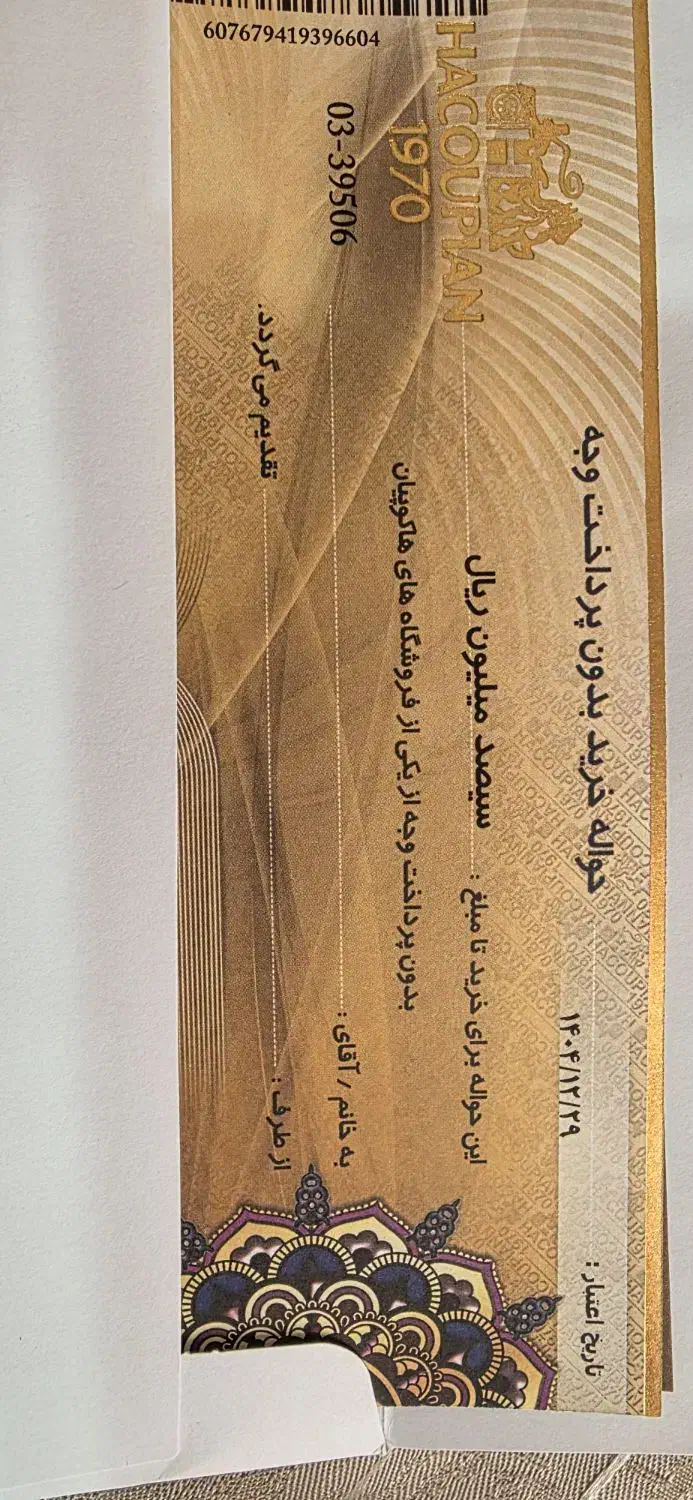 حواله خرید بدون پرداخت وجه
تاریخ اعتبار :
۱۴۰۴/۱۲/۲۹
HACOUPIAN
1970
این حواله برای خرید تا مبلغ : سیصد میلیون ریال
بدون پرداخت وجه از یکی از فروشگاه های هاکوپیان
به خانم / آقای :
03-39506
از طرف : تقدیم می گردد.
607679419396604